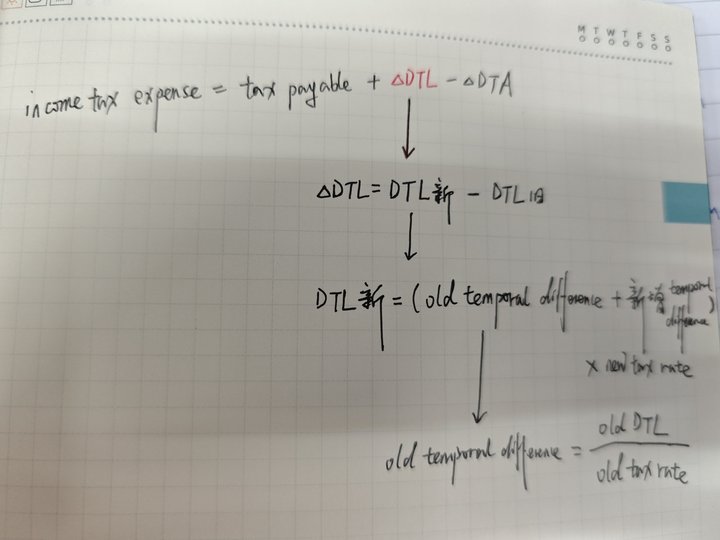 M T W T F S S
income tax expense = tax payable + ΔDTL - ΔDTA
ΔDTL = DTL新 - DTL旧
DTL新 = (old temporal difference + 新增 temporal difference)
× new tax rate
old temporal difference = old DTL / old tax rate